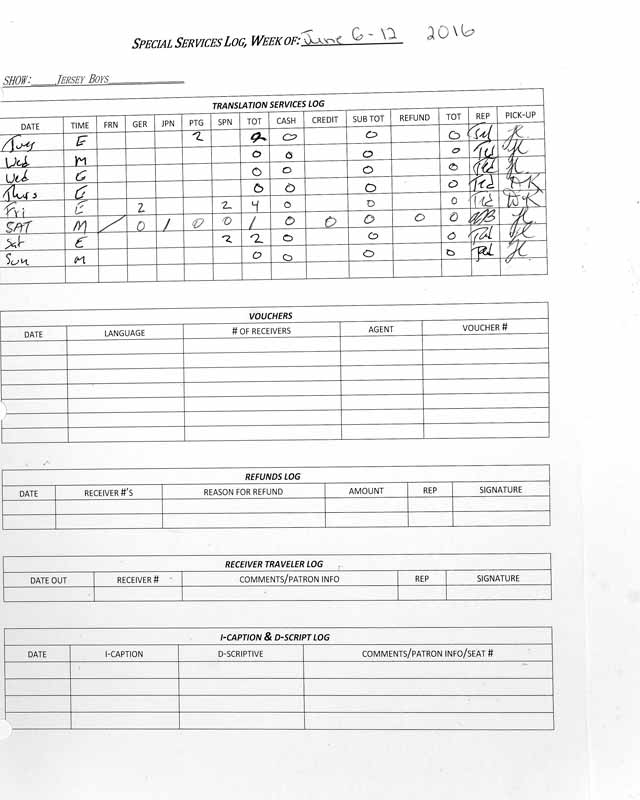 SPECIAL SERVICES LOG, WEEK OF: June 6-12 2016
SHOW: JERSEY BOYS
TRANSLATION SERVICES LOG
DATE TIME FRN GER JPN PTG SPN TOT CASH CREDIT SUB TOT REFUND TOT REP PICK-UP
Tues E 2 2 0 0 0 Ted JK
Wed M 0 0 0 0 Ted JK
Wed E 0 0 0 0 Ted JK
Thurs E 0 0 0 0 Ted DK
Fri E 2 2 4 0 0 0 Ted DK
SAT M / 0 / 0 0 / 0 0 0 0 0 JK
Sat E 2 2 0 0 0 Ted JK
Sun M 0 0 0 0 Ted JK
VOUCHERS
DATE LANGUAGE # OF RECEIVERS AGENT VOUCHER #
REFUNDS LOG
DATE RECEIVER #'S REASON FOR REFUND AMOUNT REP SIGNATURE
RECEIVER TRAVELER LOG
DATE OUT RECEIVER # COMMENTS/PATRON INFO REP SIGNATURE
I-CAPTION & D-SCRIPT LOG
DATE I-CAPTION D-SCRIPTIVE COMMENTS/PATRON INFO/SEAT #